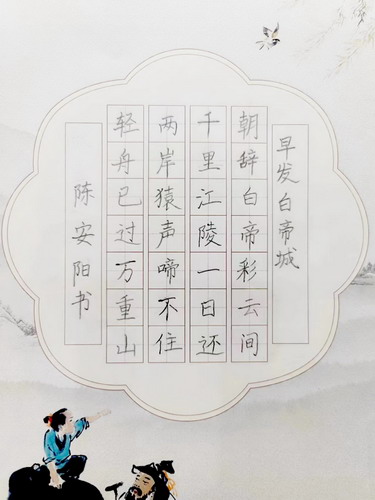 早发白帝城
朝辞白帝彩云间
千里江陵一日还
两岸猿声啼不住
轻舟已过万重山
陈安阳书